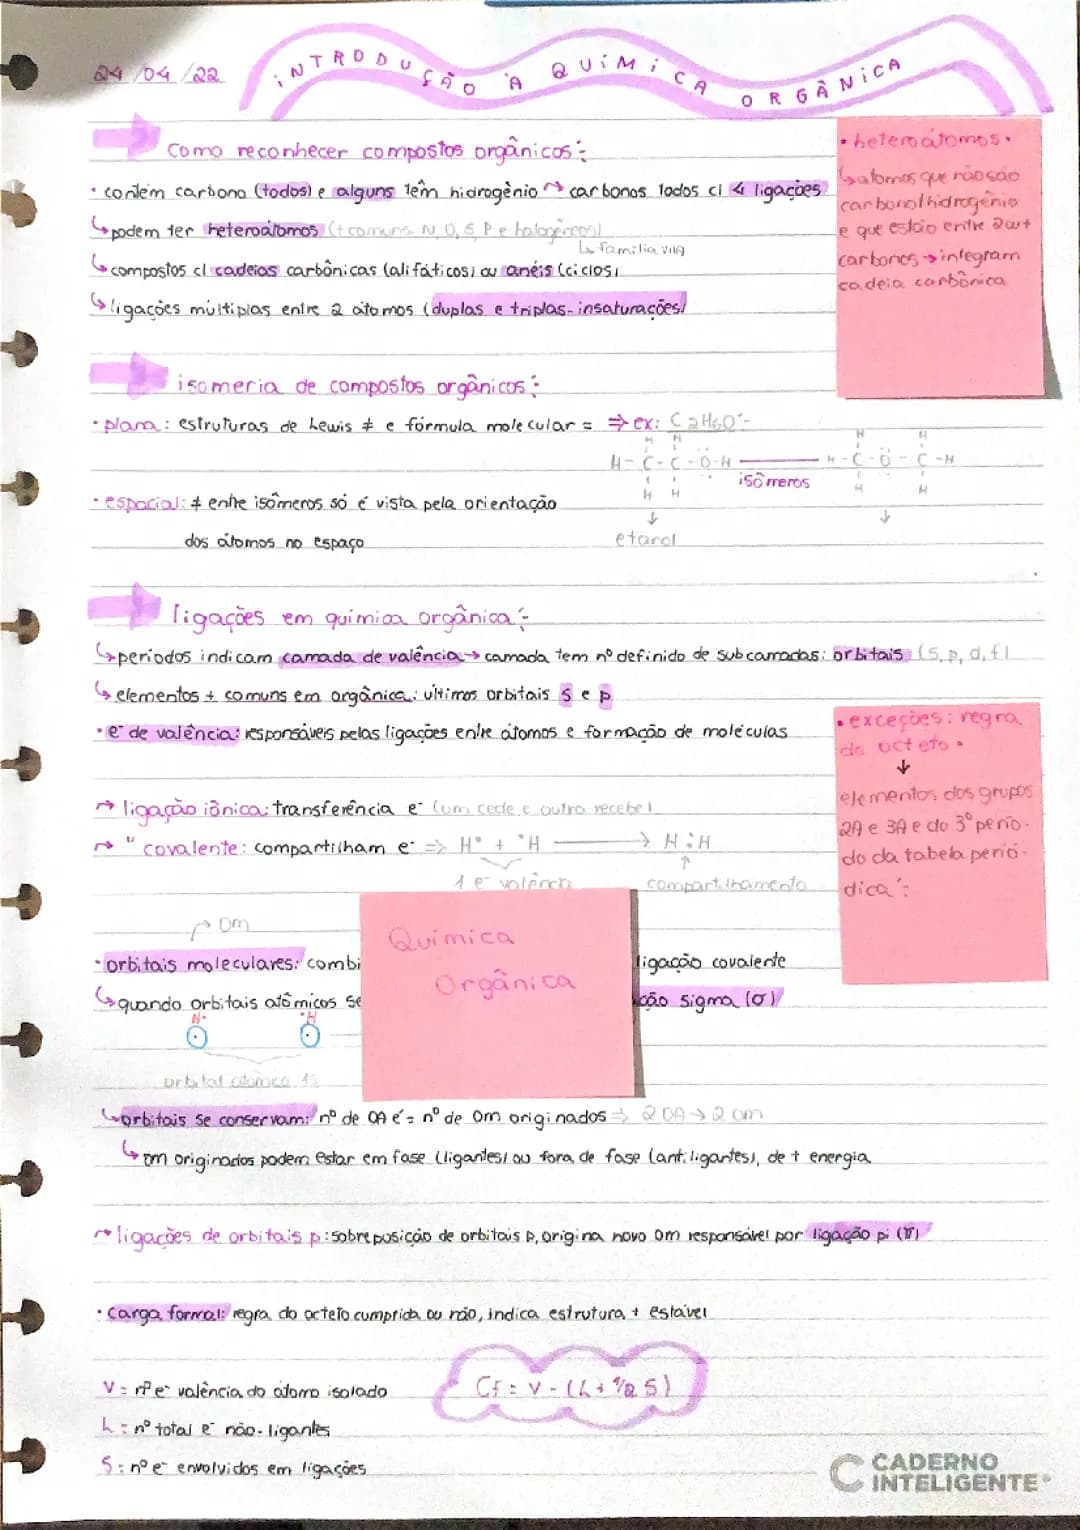 24/04/22
INTRODUÇÃO À QUÍMICA ORGÂNICA
Como reconhecer compostos orgânicos:
• contém carbono (todos) e alguns têm hidrogênio → carbonos todos c/ 4 ligações
↳ podem ter heteroátomos (+ comuns N, O, S, P e halogêneos)
↳ família VIIA
↳ compostos c/ cadeias carbônicas (alifáticos) ou anéis (ciclos)
↳ ligações múltiplas entre 2 átomos (duplas e triplas - insaturações)
• heteroátomos •
↳ átomos que não são
carbono/hidrogênio
e que estão entre 2 ou +
carbonos → integram
cadeia carbônica
isomeria de compostos orgânicos:
• plana: estruturas de Lewis ≠ e fórmula molecular = ⇒ ex: C2H6O:
H H
H-C-C-Ö-H
H H
isômeros
H H
H-C-Ö-C-H
H H
↓ ↓
etanol
• espacial: ≠ entre isômeros só é vista pela orientação
dos átomos no espaço
ligações em química orgânica:
↳ períodos indicam camada de valência → camada tem nº definido de subcamadas: orbitais (s, p, d, f)
↳ elementos + comuns em orgânica: últimos orbitais s e p
• e⁻ de valência: responsáveis pelas ligações entre átomos e formação de moléculas
• exceções: regra
do octeto •
↓
elementos dos grupos
2A e 3A e do 3º perío-
do da tabela perió-
dica:
→ ligação iônica: transferência e⁻ (um cede e outro recebe)
→ " covalente: compartilham e⁻ => H• + •H → H:H
1 e⁻ valência ↑ compartilhamento
→ OM
• orbitais moleculares: combi ligação covalente
↳ quando orbitais atômicos se ção sigma (σ)
Química
Orgânica
H• •H
orbital atômico 1s
↳ orbitais se conservam: nº de OA é = nº de OM originados ⇒ 2 OA → 2 OM
↳ OM originados podem estar em fase (ligantes) ou fora de fase (antiligantes), de + energia
→ ligações de orbitais p: sobreposição de orbitais p, origina novo OM responsável por ligação pi (π)
• carga formal: regra do octeto cumprida ou não, indica estrutura + estável
Cf = V - (L + 1/2 S)
V = nº e⁻ valência do átomo isolado
L = nº total e⁻ não-ligantes
S: nº e⁻ envolvidos em ligações
CADERNO
INTELIGENTE®